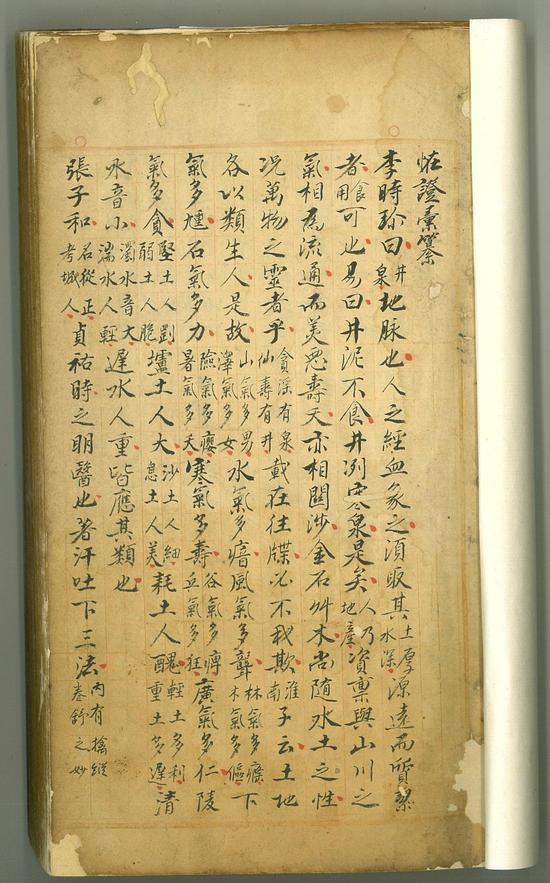 恠證彙纂
李時珍曰井泉地脉也人之經血象之須取其土厚水深源遠而質潔
者食用可也易曰井泥不食井冽寒泉是矣人乃地產資稟與山川之
氣相為流通而美惡壽夭亦相關涉金石艸木尚隨水土之性
况萬物之靈者乎貪淫有泉仙壽有井載在往牒必不我欺淮南子云土地
各以類生人是故山氣多男澤氣多女水氣多瘖風氣多聾林氣多癃木氣多傴下
氣多尰石氣多力險氣多癭暑氣多夭寒氣多壽谷氣多痺丘氣多狂廣氣多仁陵
氣多貪堅土人剛弱土人脆壚土人大沙土人細息土人美耗土人醜輕土多利重土多遲清
水音小濁水音大湍水人輕遲水人重皆應其類也
張子和名從正考城人貞祐時之明醫也著汗吐下三法內有擒縱卷舒之妙